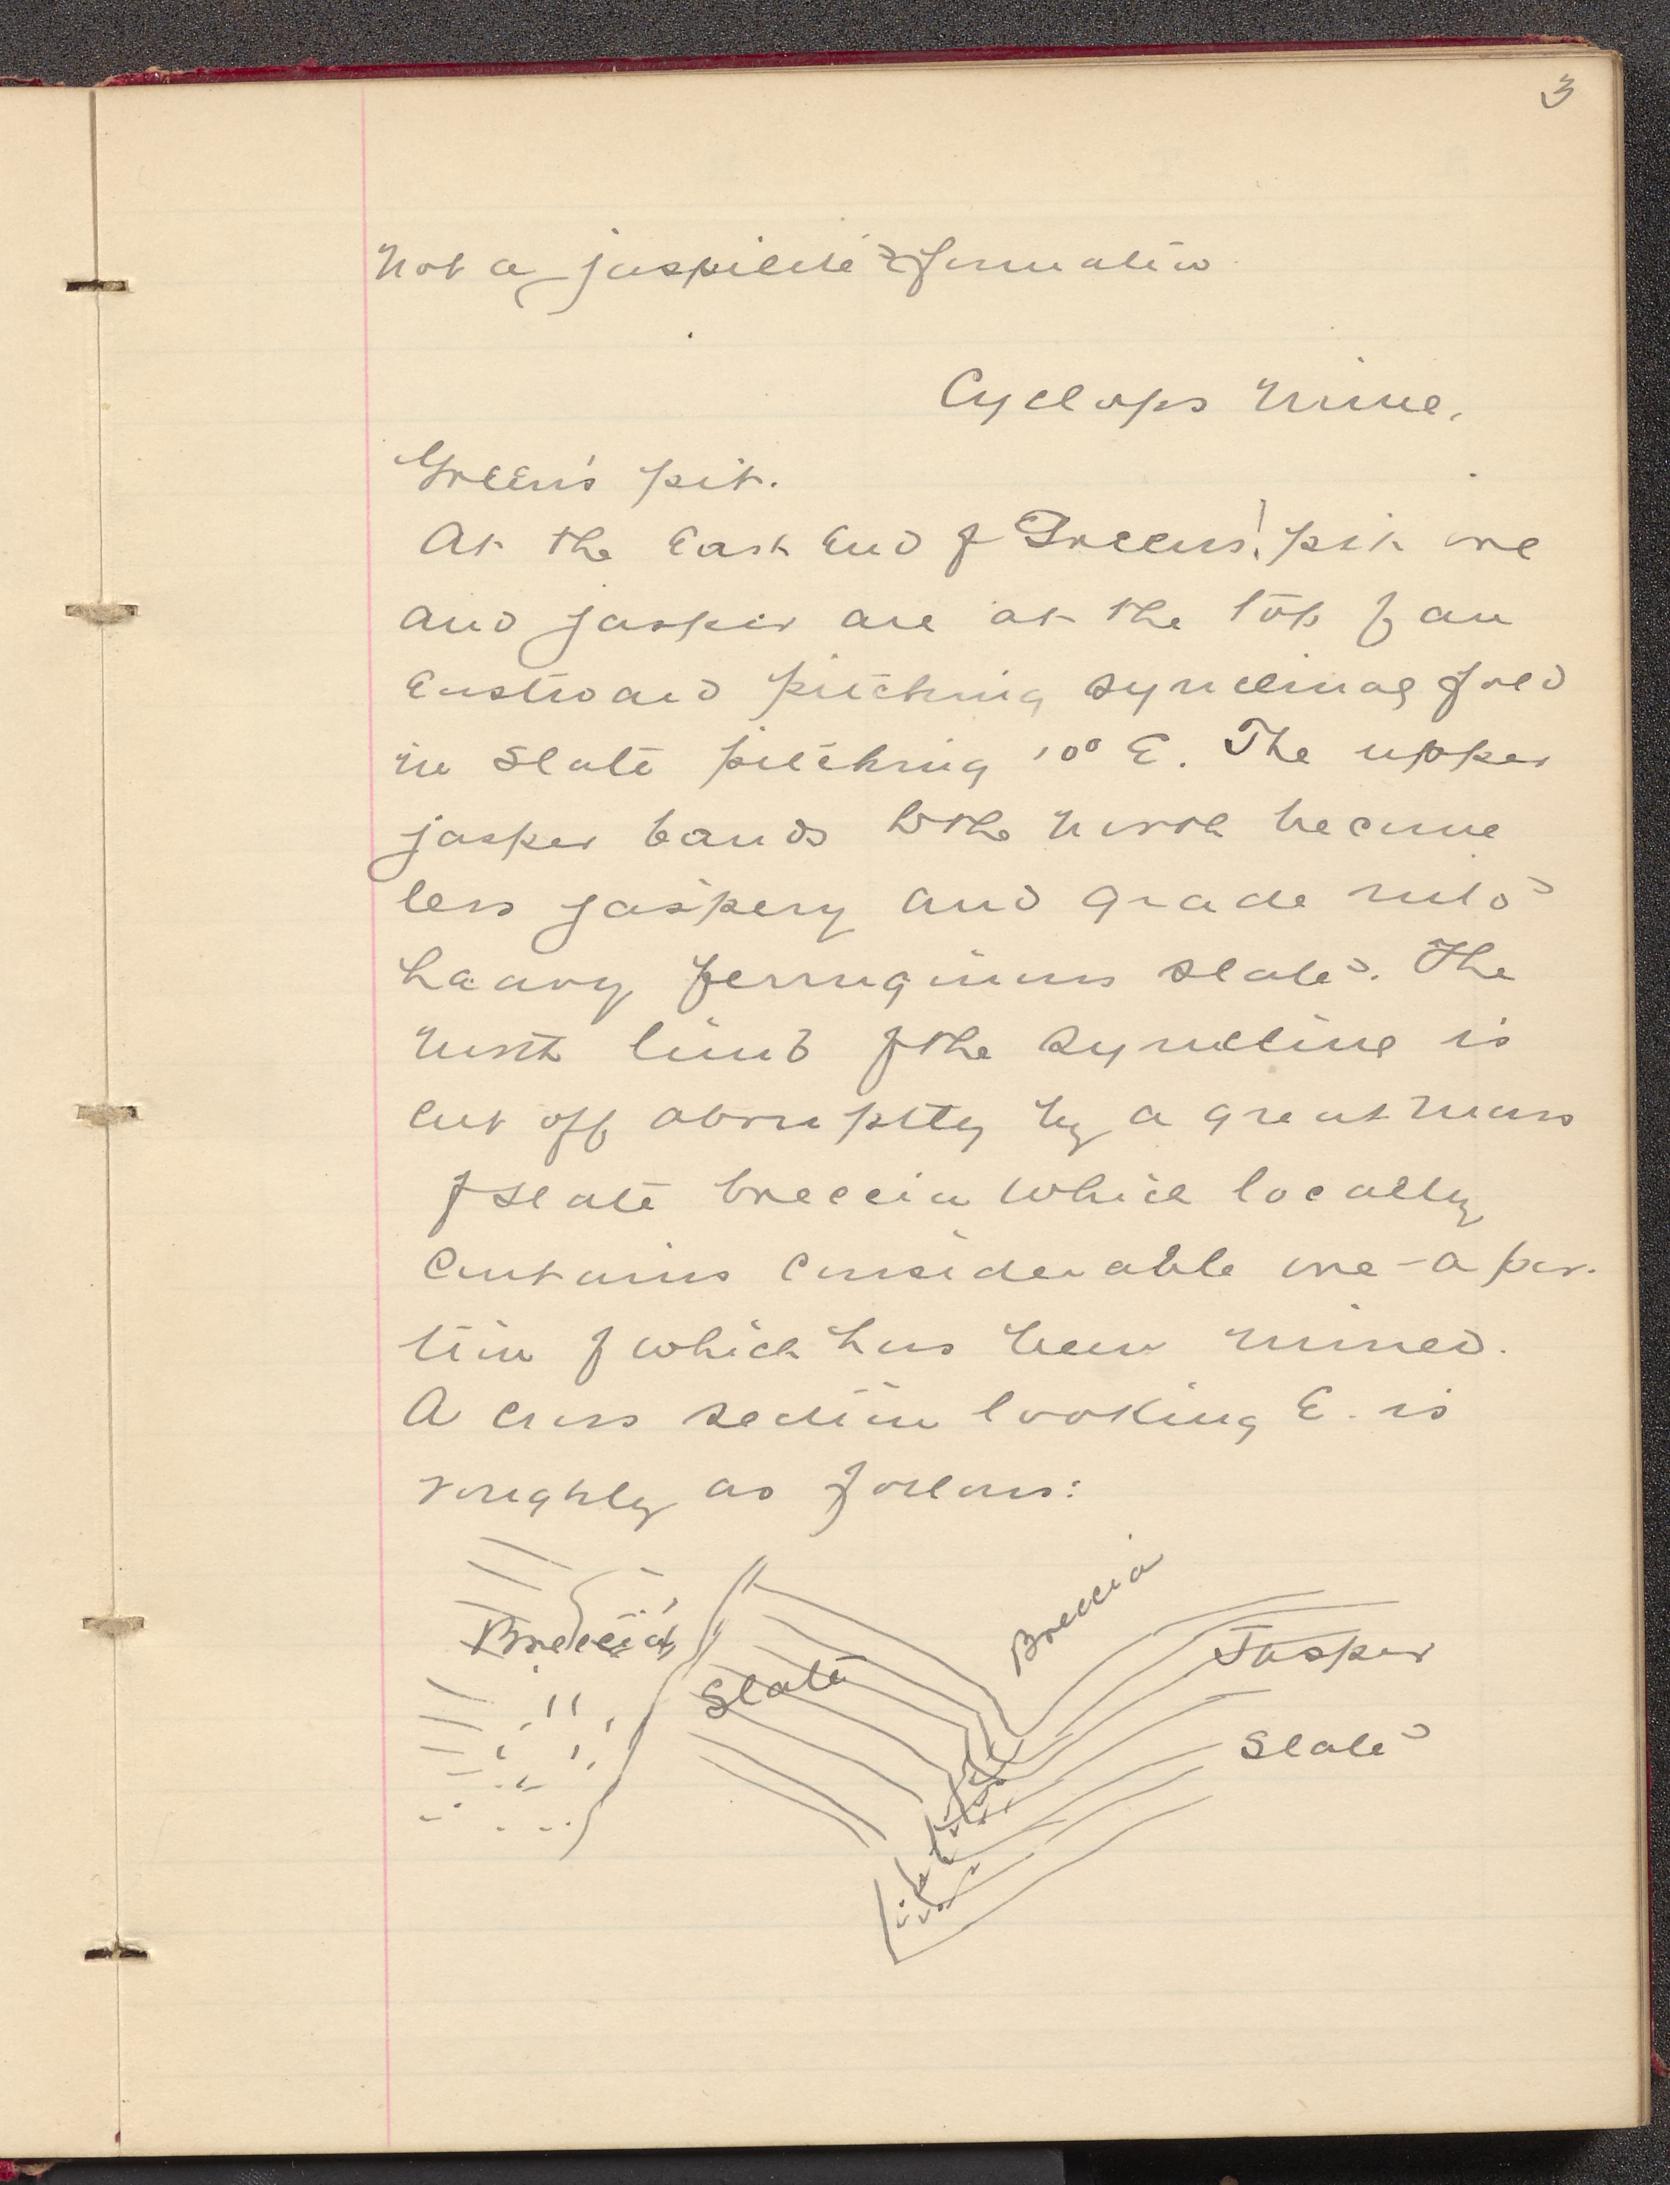 3
not a jaspilite formation
Cyclops Mine.
Green's pit.
At the East End of Greens' pit ore
and jasper are at the top of an
Eastward pitching synclinal fold
in slate pitching 10° E. The upper
jasper bands to the north become
less jaspery and grade into
heavy ferruginous slate. The
north limb of the syncline is
cut off abruptly by a great mass
of slate breccia which locally
contains considerable ore - a por-
tion of which has been mined.
A cross section looking E. is
roughly as follows:
Breccia
Breccia
Jasper
Slate
Slate